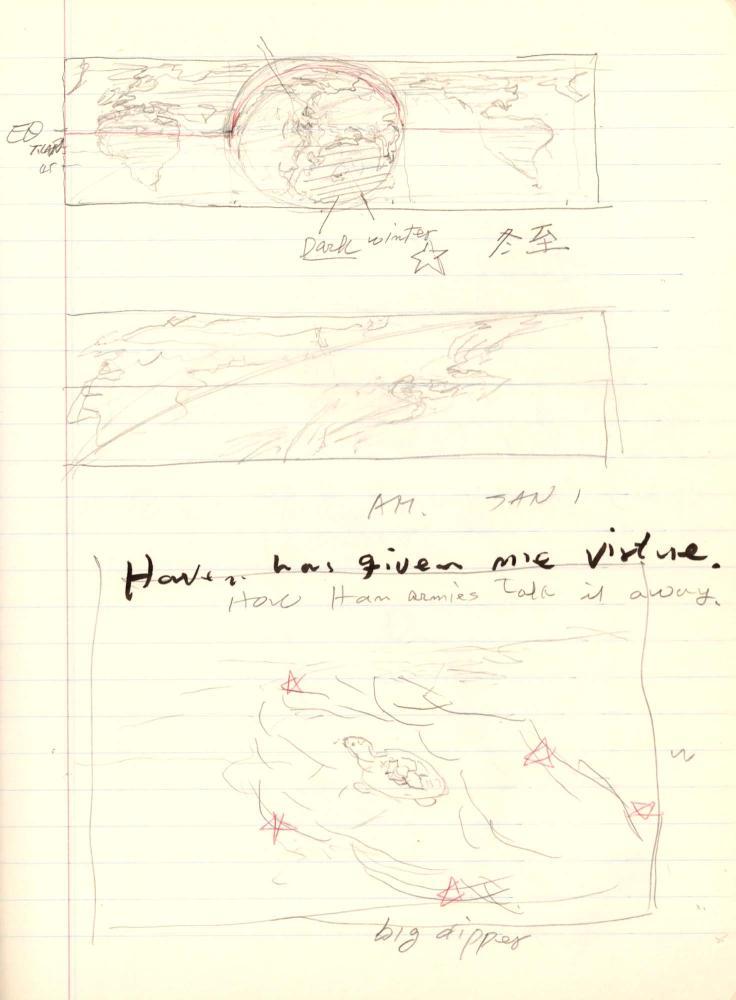 EQ
Dark winter 冬至
AM. JAN 1
Haven has given mie virtue.
How Han armies Talk it away.
big dipper